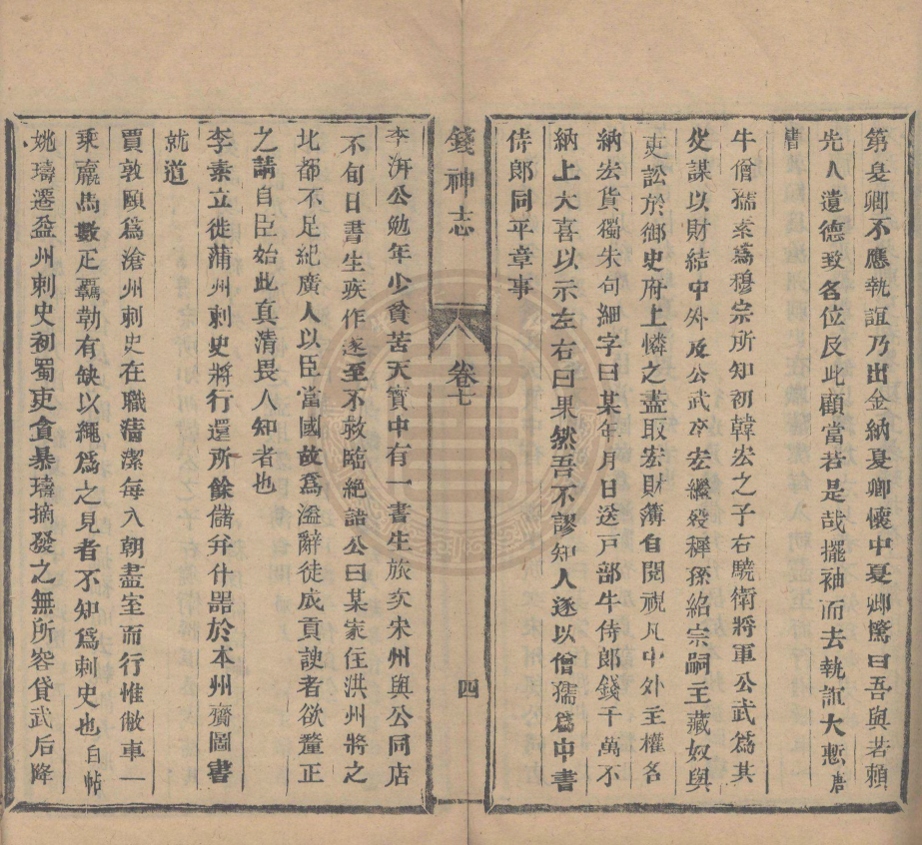 第夏卿不應執誼乃出金納夏卿懷中夏卿驚曰吾與若賴
先人遺德致名位及此顧當若是哉擺袖而去執誼大慙唐
書
牛僧孺素爲穆宗所知初韓宏之子右驍衛將軍公武爲其
父謀以財結中外及公武卒宏繼歿穉孫紹宗嗣主藏奴與
吏訟於御史府上憐之盡取宏財簿自閱視凡中外主權名
納宏貨獨朱句細字曰某年月日送戸部牛侍郎錢千萬不
納上大喜以示左右曰果然吾不謬知人遂以僧孺爲中書
侍郎同平章事
錢神志
卷七
四
李汧公勉年少貧苦天寶中有一書生旅次宋州與公同店
不旬日書生疾作遂至不救臨絶語公曰某家住洪州將之
北都不足紀廣人以臣當國故爲溢辭徒成貢諛者欲釐正
之請自臣始此真清畏人知者也
李素立徙蒲州刺史將行還所餘儲并什器於本州齎圖書
就道
賈敦頤爲滄州刺史在職清潔每入朝盡室而行惟敝車一
乘羸馬數疋羈勒有缺以繩爲之見者不知爲刺史也白帖
姚璹遷益州刺史初蜀吏貪暴璹摘發之無所容貸武后降